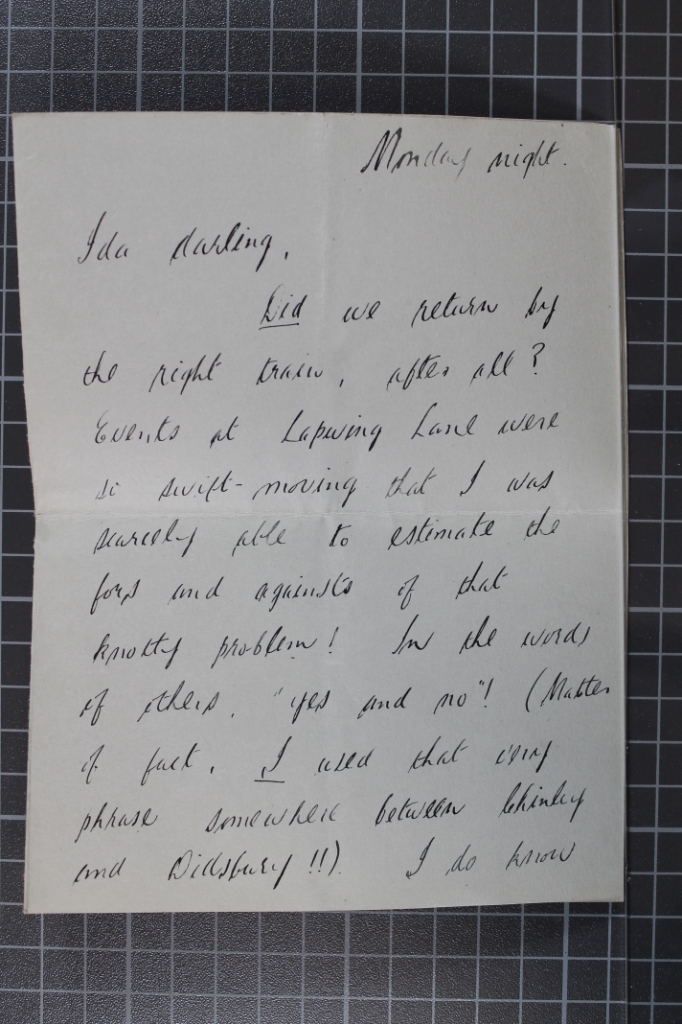 Monday night.
Ida darling,
Did we return by
the right train, after all?
Events at Lapwing Lane were
so swift-moving that I was
scarcely able to estimate the
fors and against's of that
knotty problem! In the words
of others, "yes and no"! (Matter
of fact, I used that very
phrase somewhere between Chinley
and Didsbury!!). I do know